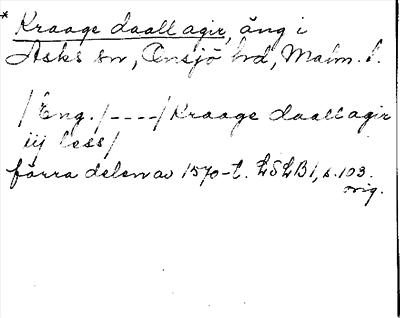 * Kraage daall agir, äng i
Asks sn, Onsjö hd, Malm. l.
/Eng./----/Kraage daall agir
iij less/
förra delen av 1570-t. LSLB1, s. 103.
orig.